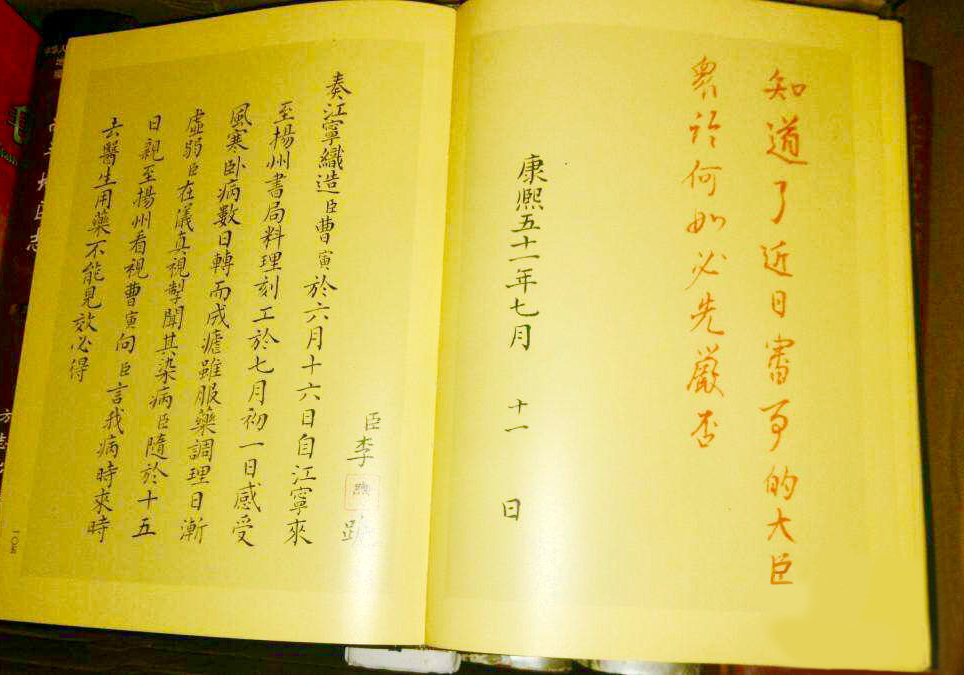 知道了近日審事的大臣
眾論何如必先嚴否
康熙五十一年七月 十一 日
臣李 跪
奏江寧織造臣曹寅於六月十六日自江寧來
至揚州書局料理刻工於七月初一日感受
風寒卧病數日轉而成瘧雖服藥調理日漸
虛弱臣在儀真視掣聞其染病臣隨於十五
日親至揚州看視曹寅向臣言我病時來時
去醫生用藥不能見效必得
一〇五